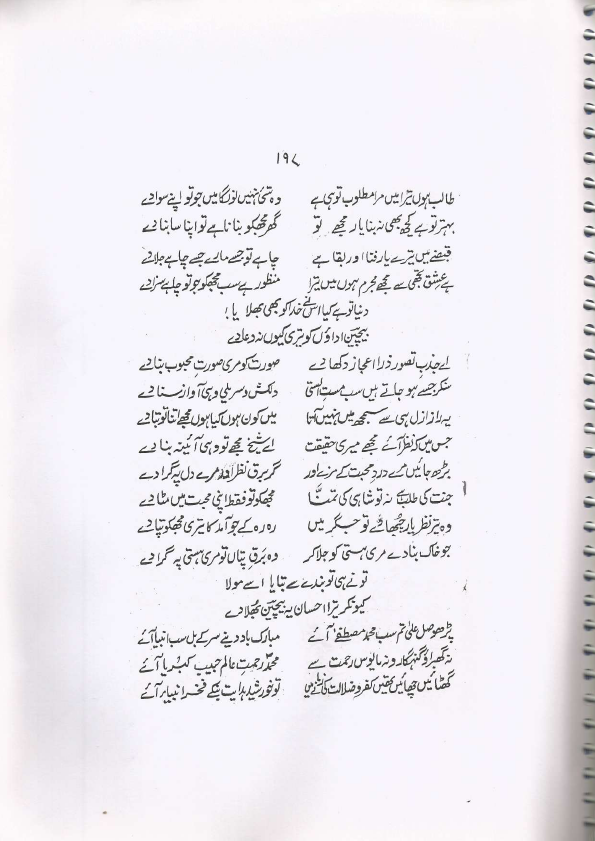 ۱۹۸
طالب ہوں تیرا میں مرا مطلوب تو ہی ہے وہ شئ نہیں لوں گا میں جو تو اپنے سوا دے
بہتر تو ہے کچھ بھی نہ بنا یار مجھے تو گھر مجھکو بنانا ہے تو اپنا سا بنا دے
قبضے میں ترے یار فنا اور بقا ہے چاہے تو جسے مارے جسے چاہے جلا دے
ہے عشق تجھی سے مجھے مجرم ہوں میں تیرا منظور ہے سب مجھکو جو تو چاہے سزا دے
دنیا تو ہے کیا اس نے خدا کو بھی بھلایا!
بیچین اداؤں کو تیری کیوں نہ دعا دے
اے جذب تصور ذرا اعجاز دکھا دے صورت کو مری صورت محبوب بنا دے
سنکر جسے ہو جاتے ہیں سب مست الستی دلکش و سریلی وہی آواز سنا دے
یہ راز ازل ہی سے سمجھ میں نہیں آتا میں کون ہوں کیا ہوں مجھے اتنا تو بتا دے
جس میں کہ نظر آئے مجھے میری حقیقت اے شیخ مجھے تو وہی آئینہ بنا دے
بڑھ جائیں مرے درد محبت کے مزے اور گر برق نظر مرے دل پہ گرا دے
جنت کی طلب ہے نہ تو شاہی کی تمنا مجھکو تو فقط اپنی محبت میں مٹا دے
وہ تیر نظر یار چبھا ہے تو جگر میں رہ رہ کے جو آمد کا تیری مجھکو پتا دے
جو خاک بنا دے مری ہستی کو جلا کر وہ برق تپاں تو مری ہستی پہ گرا دے
تو نے ہی تو بندے سے بنایا اسے مولا
کیونکر ترا احسان یہ بیچین بھلا دے
پڑھو صل علی تم سب محمد مصطفےٰ آئے مبارک باد دینے سر کے بل سب انبیا آئے
نہ گھبراؤ گنہگارو نہ مایوس رحمت سے محمد رحمت عالم حبیب کبریا آئے
گھٹائیں چھائیں تھیں کفر و ضلالت کی تو خورشید ہدایت بنکے فخر انبیا آئے